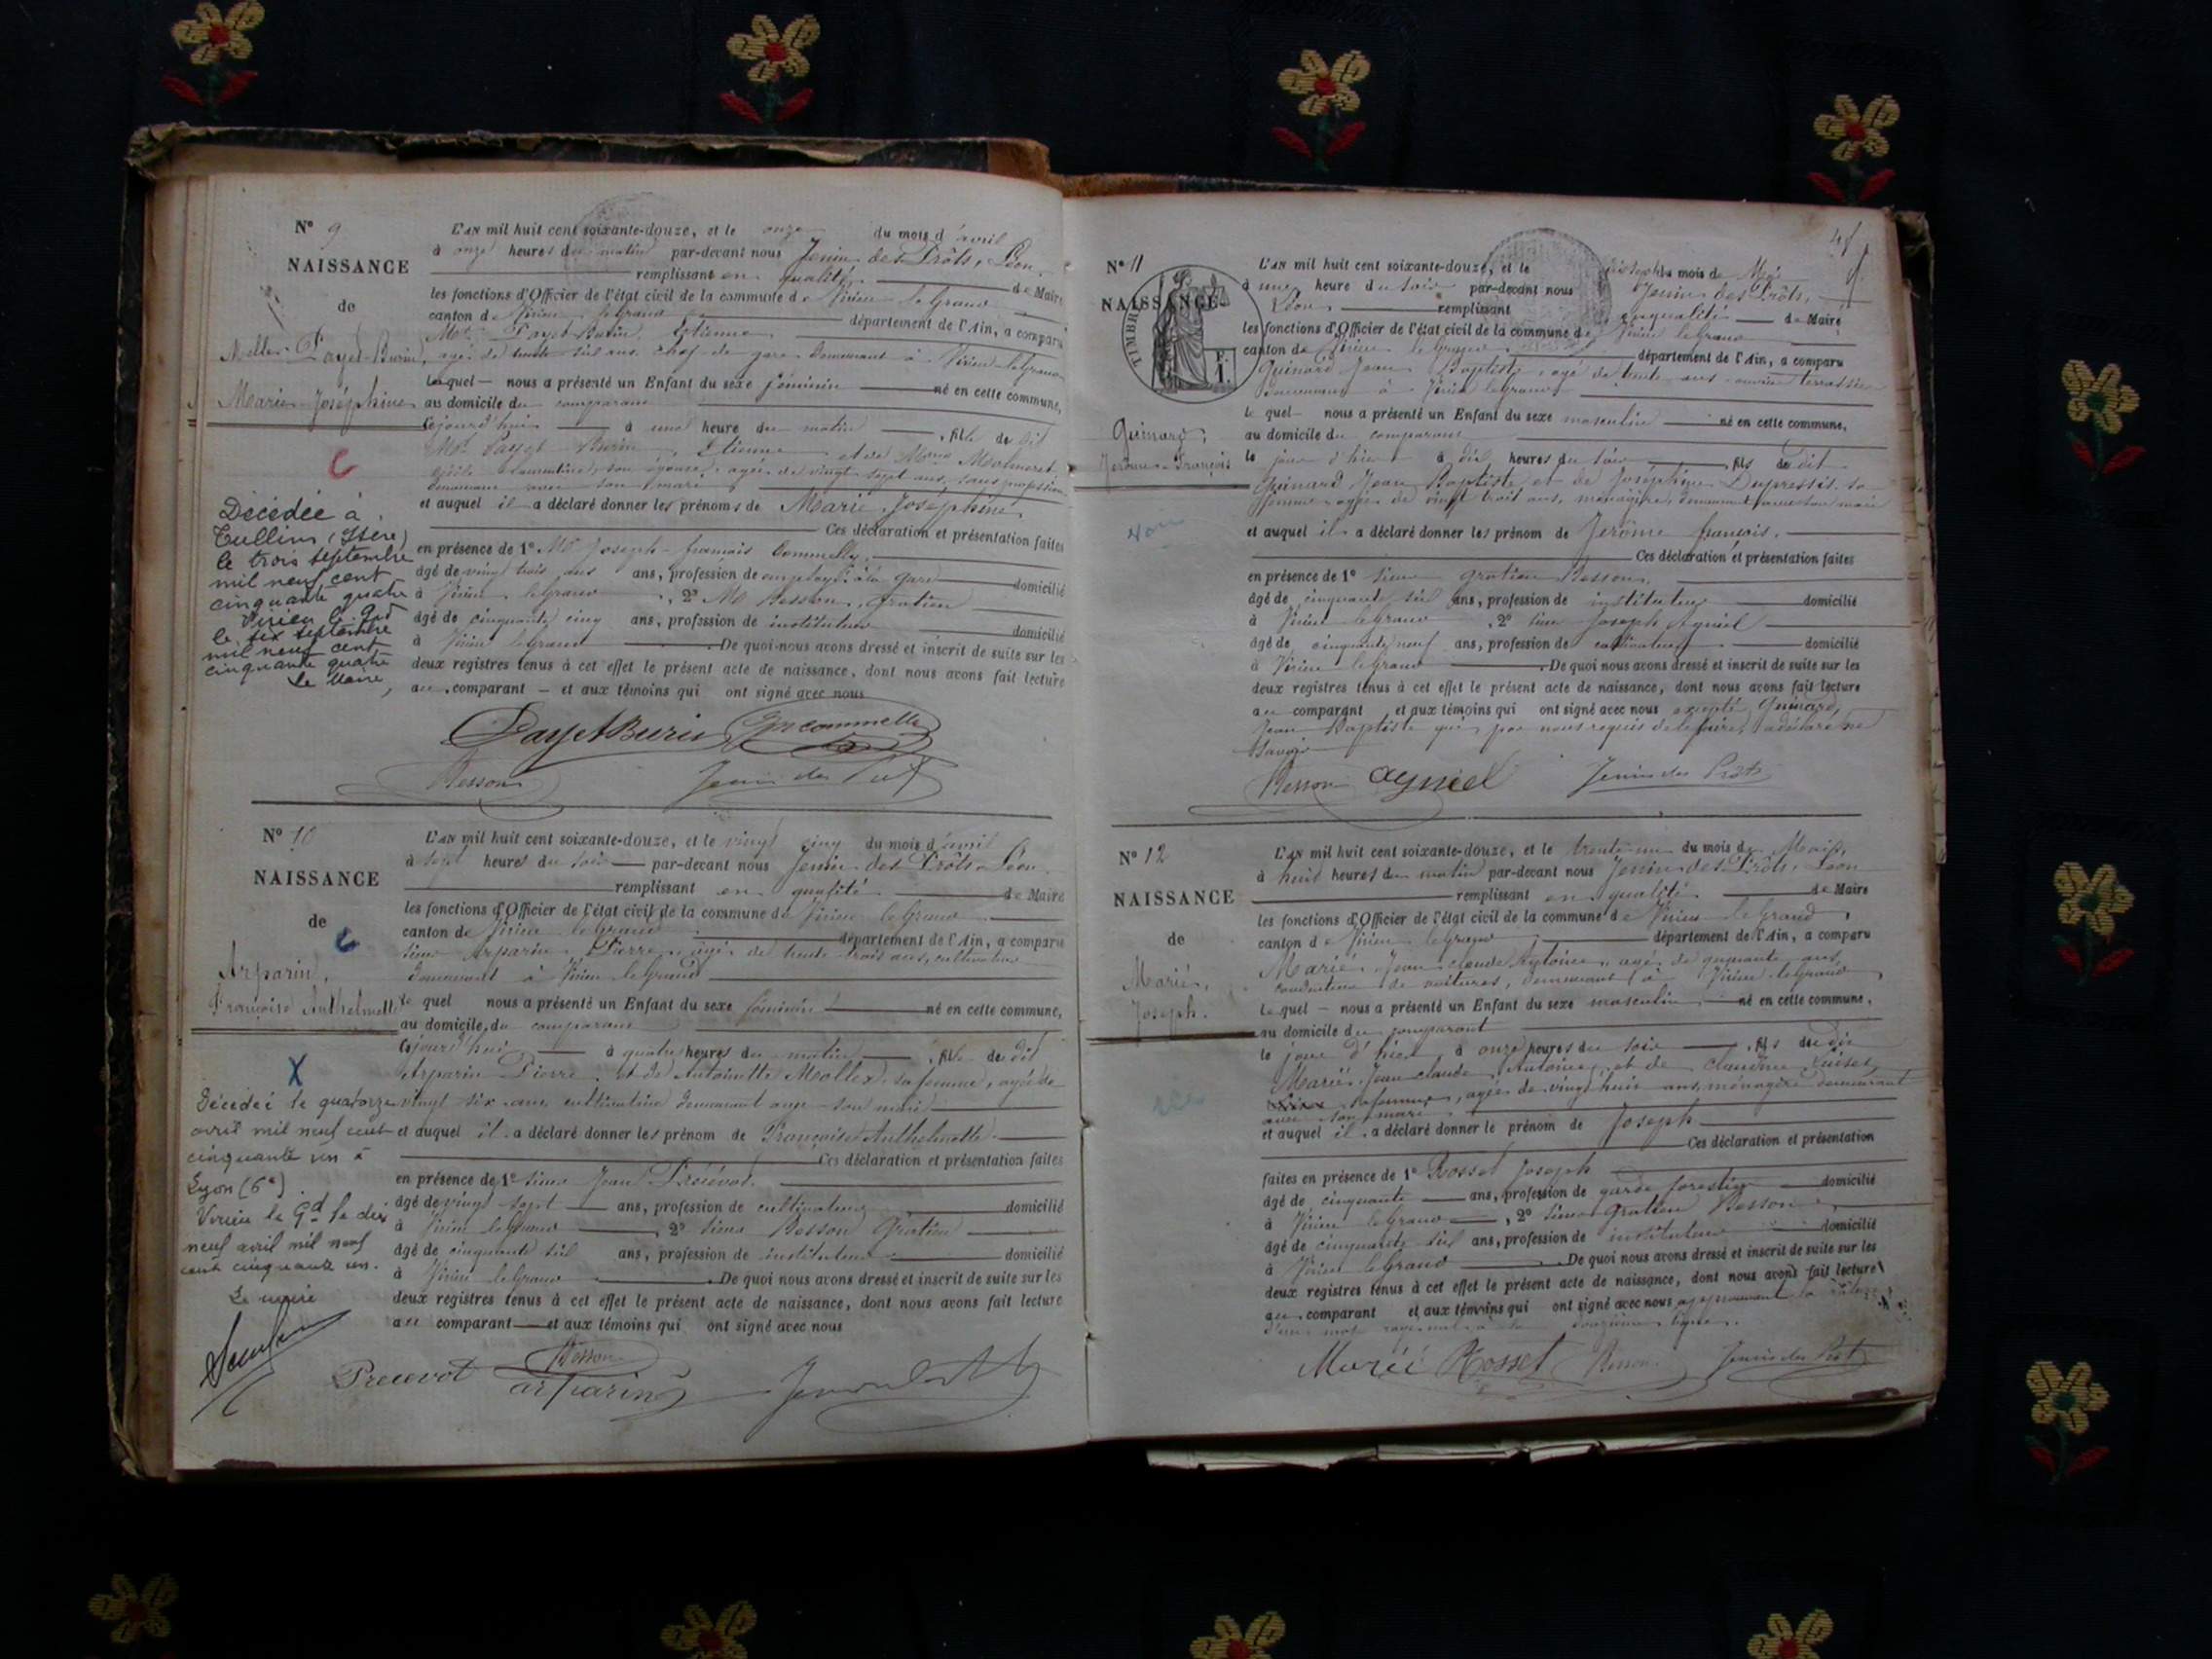 N° 9
NAISSANCE
de
Melle Payet-Burin,
Marie Joséphine
Décédée à
Tullins (Isère)
le trois septembre
mil neuf cent
cinquante quatre
Virieu le Gd
le six septembre
mil neuf cent
cinquante quatre
Le Maire,
L'AN mil huit cent soixante-douze, et le onze du mois d'avril
à onze heures du matin par-devant nous Jenin des Prôts, Léon,
remplissant en qualité de Maire
les fonctions d'Officier de l'état civil de la commune de Virieu le Grand
canton de Virieu le Grand département de l'Ain, a comparu
Mr Payet-Burin, Etienne
agé de trente six ans, chef de gare demeurant à Virieu le Grand
lequel nous a présenté un Enfant du sexe féminin né en cette commune,
au domicile du comparant
cejourd'hui à une heure du matin, fille du dit
Mr Payet Burin Etienne et de Mme
son épouse, agée de vingt sept ans, sans profession
demeurant avec son mari
et auquel il a déclaré donner les prénoms de Marie Joséphine
Ces déclaration et présentation faites
en présence de 1° Mr Joseph françois Commelly,
âgé de vingt trois ans ans, profession de employé à la gare domicilié
à Virieu le Grand, 2° M Besson, Gratien
âgé de cinquante cinq ans, profession de instituteur domicilié
à Virieu le Grand De quoi nous avons dressé et inscrit de suite sur les
deux registres tenus à cet effet le présent acte de naissance, dont nous avons fait lecture
au comparant et aux témoins qui ont signé avec nous
Payet Burin
Besson Jenin des Prôts
N° 10
NAISSANCE
de
Arparin,
Françoise Anthelmette
X
Décédée le quatorze
avril mil neuf cent
cinquante un à
Lyon (6e)
Virieu le Gd le dix
neuf avril mil neuf
cent cinquante un.
Le maire
L'AN mil huit cent soixante-douze, et le vingt cinq du mois d'avril
à sept heures du soir par-devant nous Jenin des Prôts Léon
remplissant en qualité de Maire
les fonctions d'Officier de l'état civil de la commune de Virieu le Grand
canton de Virieu le Grand département de l'Ain, a comparu
sieur Arparin, Pierre, agé de trente trois ans, cultivateur
demeurant à Virieu le Grand
lequel nous a présenté un Enfant du sexe féminin né en cette commune,
au domicile du comparant
cejourd'hui à quatre heures du matin, fille du dit
Arparin Pierre et de Antoinette Mollex, sa femme, agée de
vingt six ans cultivatrice demeurant avec son mari
et auquel il a déclaré donner les prénom de Françoise Anthelmette
Ces déclaration et présentation faites
en présence de 1° sieur Jean Prévot,
âgé de vingt sept ans, profession de cultivateur domicilié
à Virieu le Grand, 2° sieur Besson Gratien
âgé de cinquante six ans, profession de instituteur domicilié
à Virieu le Grand De quoi nous avons dressé et inscrit de suite sur les
deux registres tenus à cet effet le présent acte de naissance, dont nous avons fait lecture
au comparant et aux témoins qui ont signé avec nous
Besson
Prevot arparin
N° 11
NAISSANCE
TIMBRE
F. 1
Guinard,
Jérôme François
L'AN mil huit cent soixante-douze, et le du mois de Mai
à une heure du soir par-devant nous Jenin des Prôts,
Léon remplissant en qualité de Maire
les fonctions d'Officier de l'état civil de la commune de Virieu le Grand
canton de Virieu le Grand département de l'Ain, a comparu
Guinard Jean Baptiste, agé de trente ans ouvrier terrassier
demeurant à Virieu le Grand
lequel nous a présenté un Enfant du sexe masculin né en cette commune,
au domicile du comparant
le jour d'hier à dix heures du soir, fils du dit
Guinard Jean Baptiste et de Joséphine Dupressis sa
femme agée de vingt trois ans, ménagère, demeurant avec son mari
et auquel il a déclaré donner les prénom de Jérôme françois.
Ces déclaration et présentation faites
en présence de 1° sieur Gratien Besson,
âgé de cinquante six ans, profession de instituteur domicilié
à Virieu le Grand, 2° sieur Joseph Ayniel
âgé de cinquante neuf ans, profession de cultivateur domicilié
à Virieu le Grand De quoi nous avons dressé et inscrit de suite sur les
deux registres tenus à cet effet le présent acte de naissance, dont nous avons fait lecture
au comparant et aux témoins qui ont signé avec nous excepté Guinard
Jean Baptiste qui par nous requis de le faire, a déclaré ne
savoir
Besson ayniel Jenin des Prôts
N° 12
NAISSANCE
de
Marié,
Joseph.
L'AN mil huit cent soixante-douze, et le trente un du mois de Mai,
à huit heures du matin par-devant nous Jenin des Prôts, Léon
remplissant en qualité de Maire
les fonctions d'Officier de l'état civil de la commune de Virieu le Grand,
canton de Virieu le Grand département de l'Ain, a comparu
Marié, Jean claude Antoine, agé de quarante ans,
conducteur de voitures, demeurant à Virieu le Grand,
lequel nous a présenté un Enfant du sexe masculin né en cette commune,
au domicile du comparant
le jour d'hier à onze heures du soir, fils du dit
Marié, Jean claude Antoine, et de claudine
sa femme, agée de vingt huit ans, ménagère demeurant
avec son mari
et auquel il a déclaré donner le prénom de Joseph
Ces déclaration et présentation
faites en présence de 1° Rosset Joseph
âgé de cinquante ans, profession de garde forestier domicilié
à Virieu le Grand, 2° sieur Gratien Besson,
âgé de cinquante six ans, profession de instituteur domicilié
à Virieu le Grand De quoi nous avons dressé et inscrit de suite sur les
deux registres tenus à cet effet le présent acte de naissance, dont nous avons fait lecture
au comparant et aux témoins qui ont signé avec nous approuvant la
d'un mot rayé nul à la douzième ligne.
Marié Rosset Besson Jenin des Prôts